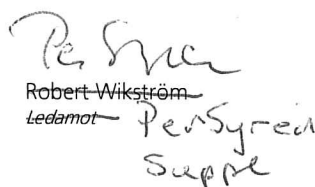 Robert Wikström
Ledamot
Per Syrén
Suppl